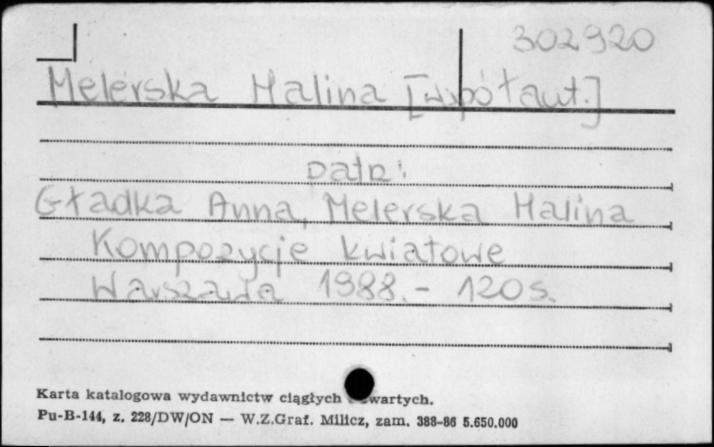 302920
Melerska Halina [współaut.]
patrz:
Gładka Anna, Melerska Halina
Kompozycje kwiatowe
Warszawa 1988. - 120 s.
Karta katalogowa wydawnictw ciągłych wartych.
Pu-B-144, z. 228/DW/ON — W.Z.Graf. Milicz, zam. 388-86 5.650.000